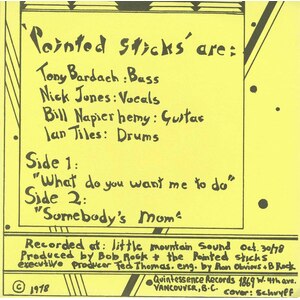 'Pointed Sticks' are:
Tony Bardach: Bass
Nick Jones: Vocals
Bill Napier hemy: Guitar
Ian Tiles: Drums
Side 1:
"What do you want me to do"
Side 2:
"Somebody's Mom"
Recorded at: little mountain Sound Oct. 30/78
Produced by Bob Rock + the Pointed sticks
executive producer Ted Thomas. eng. by Ron Obvious + B Rock
Quintessence Records 1869 W. 4th ave.
VANCOUVER, B.C.
© 1978
cover: Schuyff